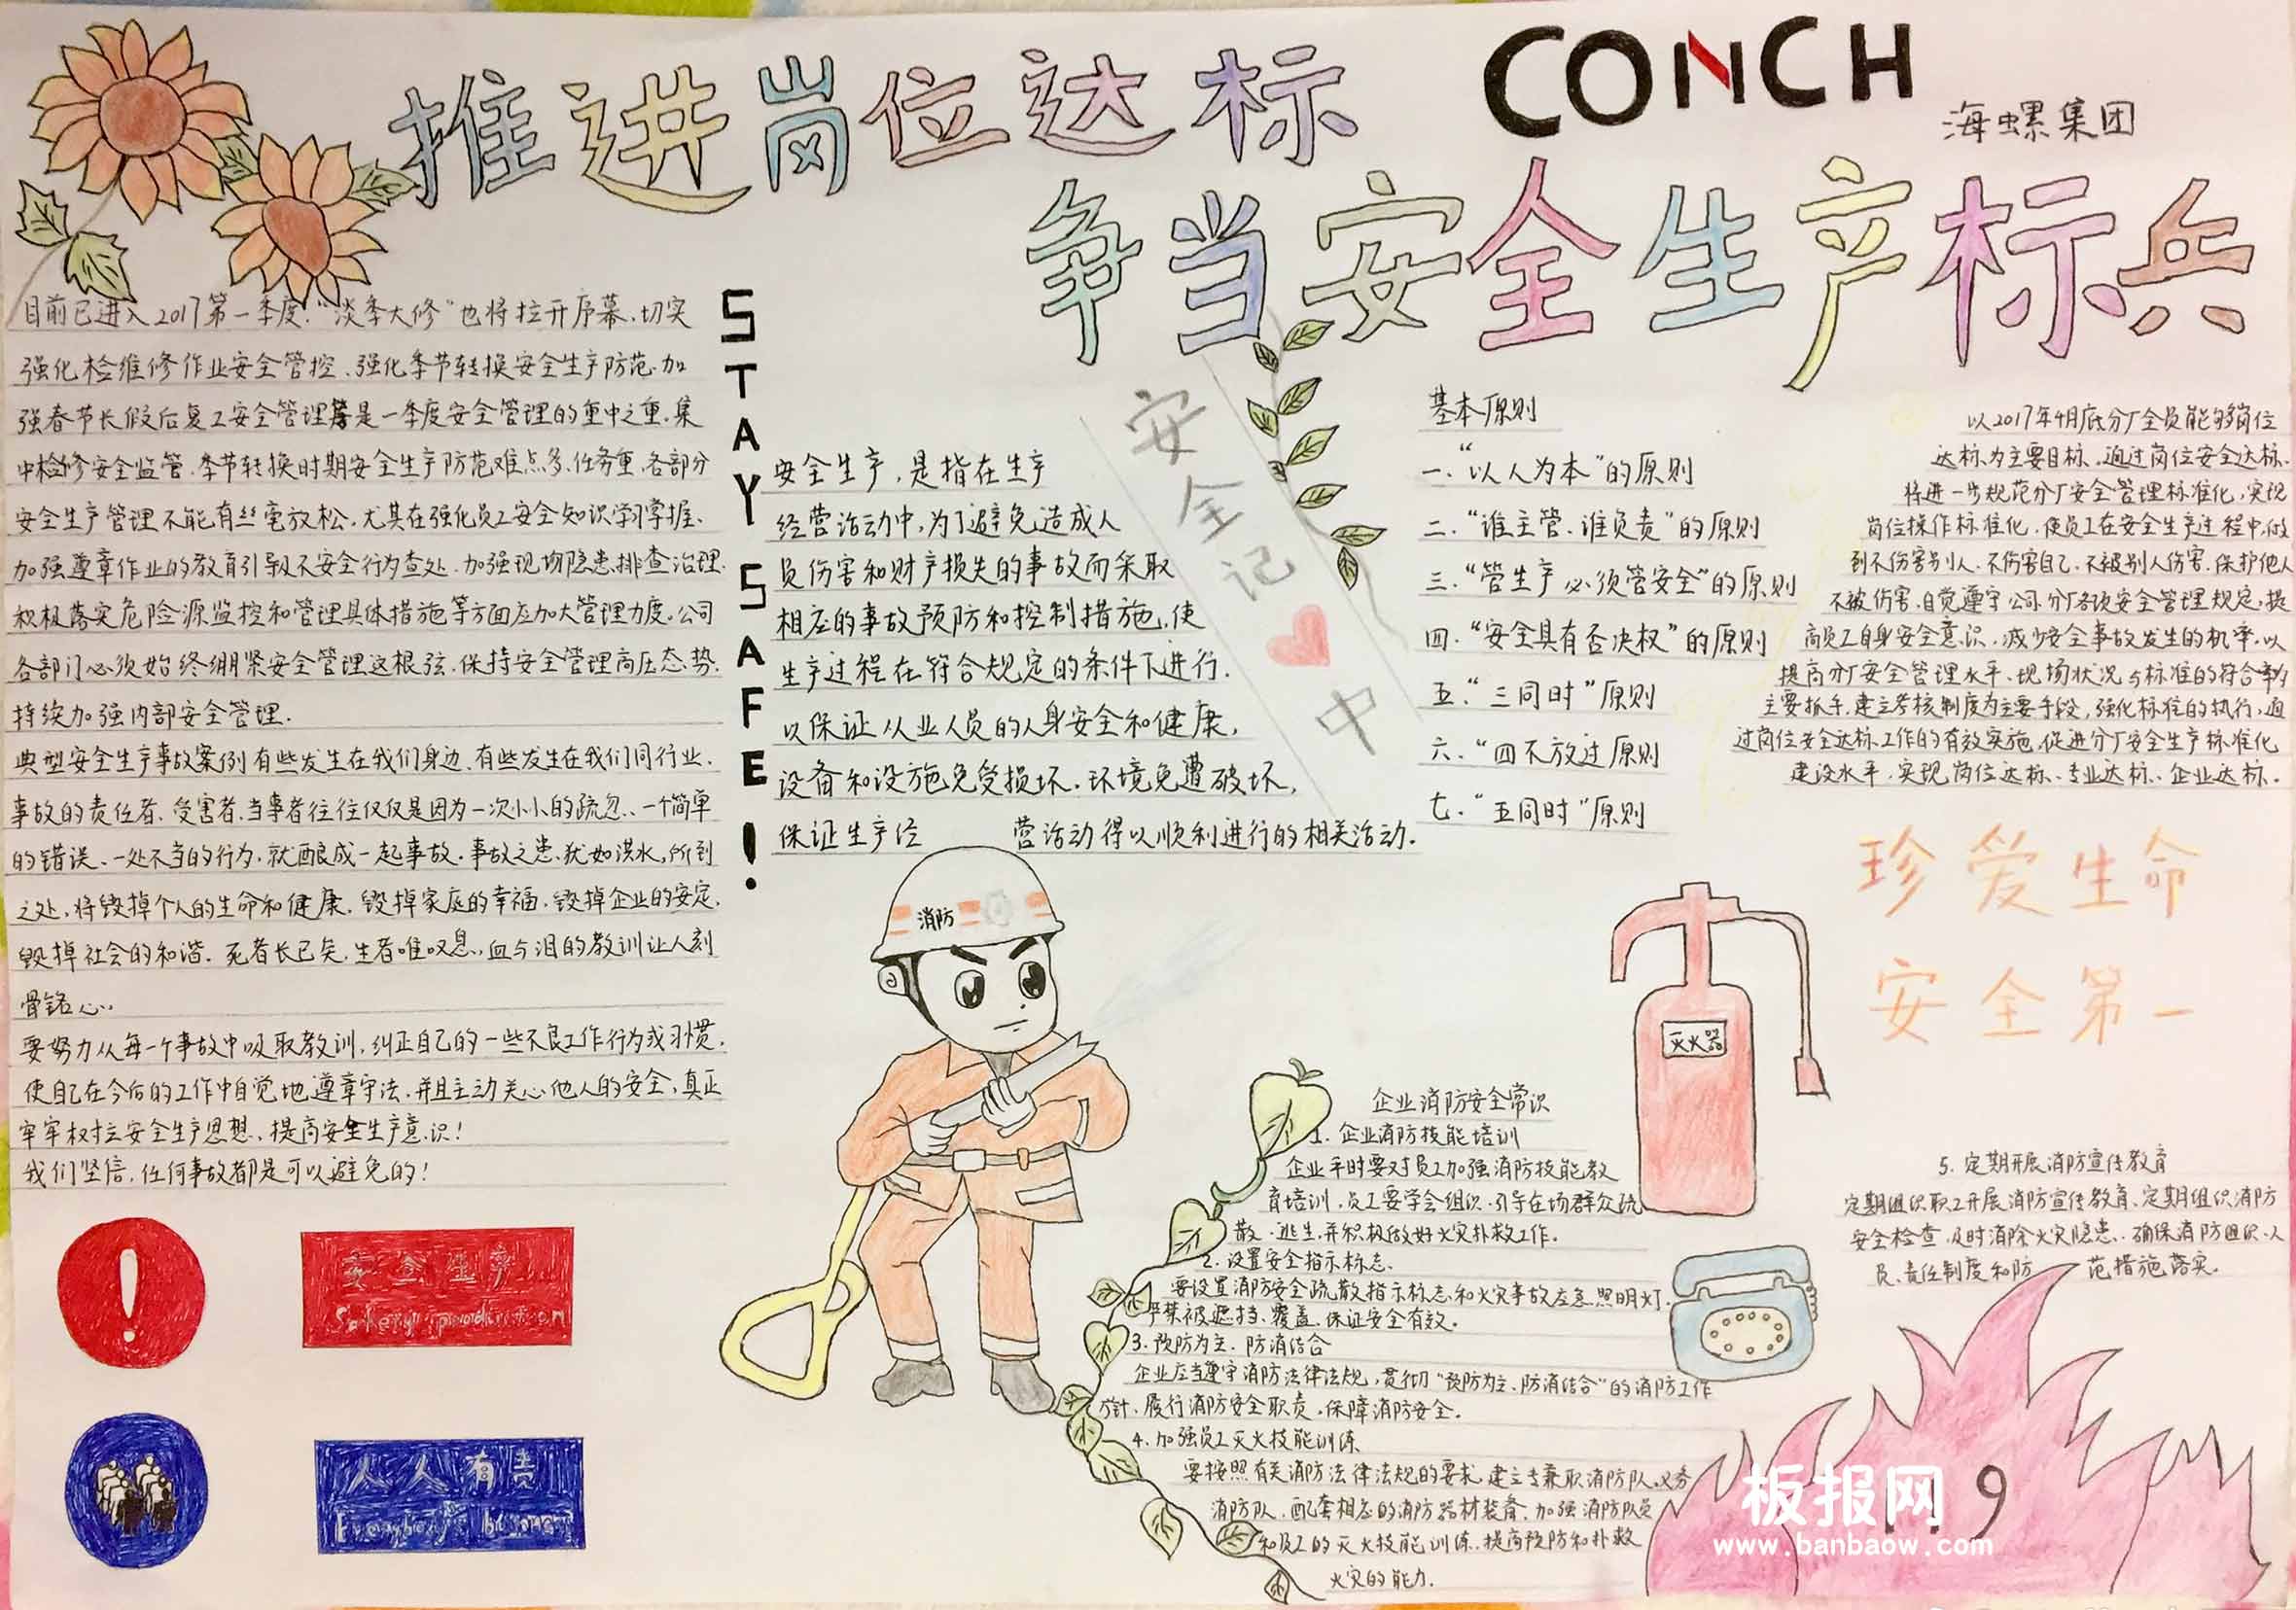 推进岗位达标
CONCH
海螺集团
争当安全生产标兵
目前已进入2017第一季度,“淡季大修”也将拉开序幕,切实
强化检维修作业安全管控、强化季节转换安全生产防范、加
强春节长假后复工安全管理等是一季度安全管理的重中之重。集
中检修安全监管、季节转换时期安全生产防范难点多、任务重,各部分
安全生产管理不能有丝毫放松,尤其在强化员工安全知识学习掌握、
加强遵章作业的教育引导及不安全行为查处、加强现场隐患排查治理、
积极落实危险源监控和管理具体措施等方面应加大管理力度。公司
各部门必须始终绷紧安全管理这根弦,保持安全管理高压态势,
持续加强内部安全管理.
典型安全生产事故案例有些发生在我们身边、有些发生在我们同行业,
事故的责任者、受害者、当事者往往仅仅是因为一次小小的疏忽、一个简单
的错误、一处不当的行为,就酿成一起事故。事故之患,犹如洪水,所到
之处,将毁掉个人的生命和健康,毁掉家庭的幸福,毁掉企业的安定,
毁掉社会的和谐。死者长已矣,生者唯叹息,血与泪的教训让人刻
骨铭心、
要努力从每一个事故中吸取教训,纠正自己的一些不良工作行为或习惯,
使自己在今后的工作中自觉地遵章守法,并且主动关心他人的安全,真正
牢牢树立安全生产思想、提高安全生产意识!
我们坚信,任何事故都是可以避免的!
STAY SAFE!
安全生产,是指在生产
经营活动中,为了避免造成人
员伤害和财产损失的事故而采取
相应的事故预防和控制措施,使
生产过程在符合规定的条件下进行.
以保证从业人员的人身安全和健康,
设备和设施免受损坏,环境免遭破坏,
保证生产经 营活动得以顺利进行的相关活动.
安全记❤中
基本原则
一.“以人为本”的原则
二.“谁主管、谁负责”的原则
三.“管生产必须管安全”的原则
四.“安全具有否决权”的原则
五.“三同时”原则
六.“四不放过原则
七.“五同时”原则
以2017年4月底分厂全员能够岗位
达标为主要目标,通过岗位安全达标,
将进一步规范分厂安全管理标准化,实现
岗位操作标准化,使员工在安全生产过程中,做
到不伤害别人、不伤害自己、不被别人伤害、保护他人
不被伤害,自觉遵守公司、分厂各项安全管理规定,提
高员工自身安全意识,减少安全事故发生的机率,以
提高分厂安全管理水平、现场状况与标准的符合率为
主要抓手,建立考核制度为主要手段,强化标准的执行,通
过岗位安全达标工作的有效实施,促进分厂安全生产标准化
建设水平,实现岗位达标、专业达标、企业达标.
珍爱生命
安全第一
消防
灭火器
企业消防安全常识
1.企业消防技能培训
企业平时要对员工加强消防技能教
育培训,员工要学会组织、引导在场群众疏
散、逃生,并积极做好火灾扑救工作.
2.设置安全指示标志.
要设置消防安全疏散指示标志和火灾事故应急照明灯,
严禁被遮挡、覆盖,保证安全有效.
3.预防为主、防消结合
企业应当遵守消防法律法规,贯彻“预防为主、防消结合”的消防工作
方针、履行消防安全职责,保障消防安全.
4.加强员工灭火技能训练
要按照有关消防法律法规的要求,建立专兼职消防队、义务
消防队,配套相应的消防器材装备,加强消防队员
和员工的灭火技能训练,提高预防和扑救
火灾的能力.
5.定期开展消防宣传教育
定期组织职工开展消防宣传教育、定期组织消防
安全检查,及时消除火灾隐患、确保消防组织、人
员、责任制度和防 范措施落实.
安全生产
Safety production
人人有责
9
板报网
www.banbaow.com